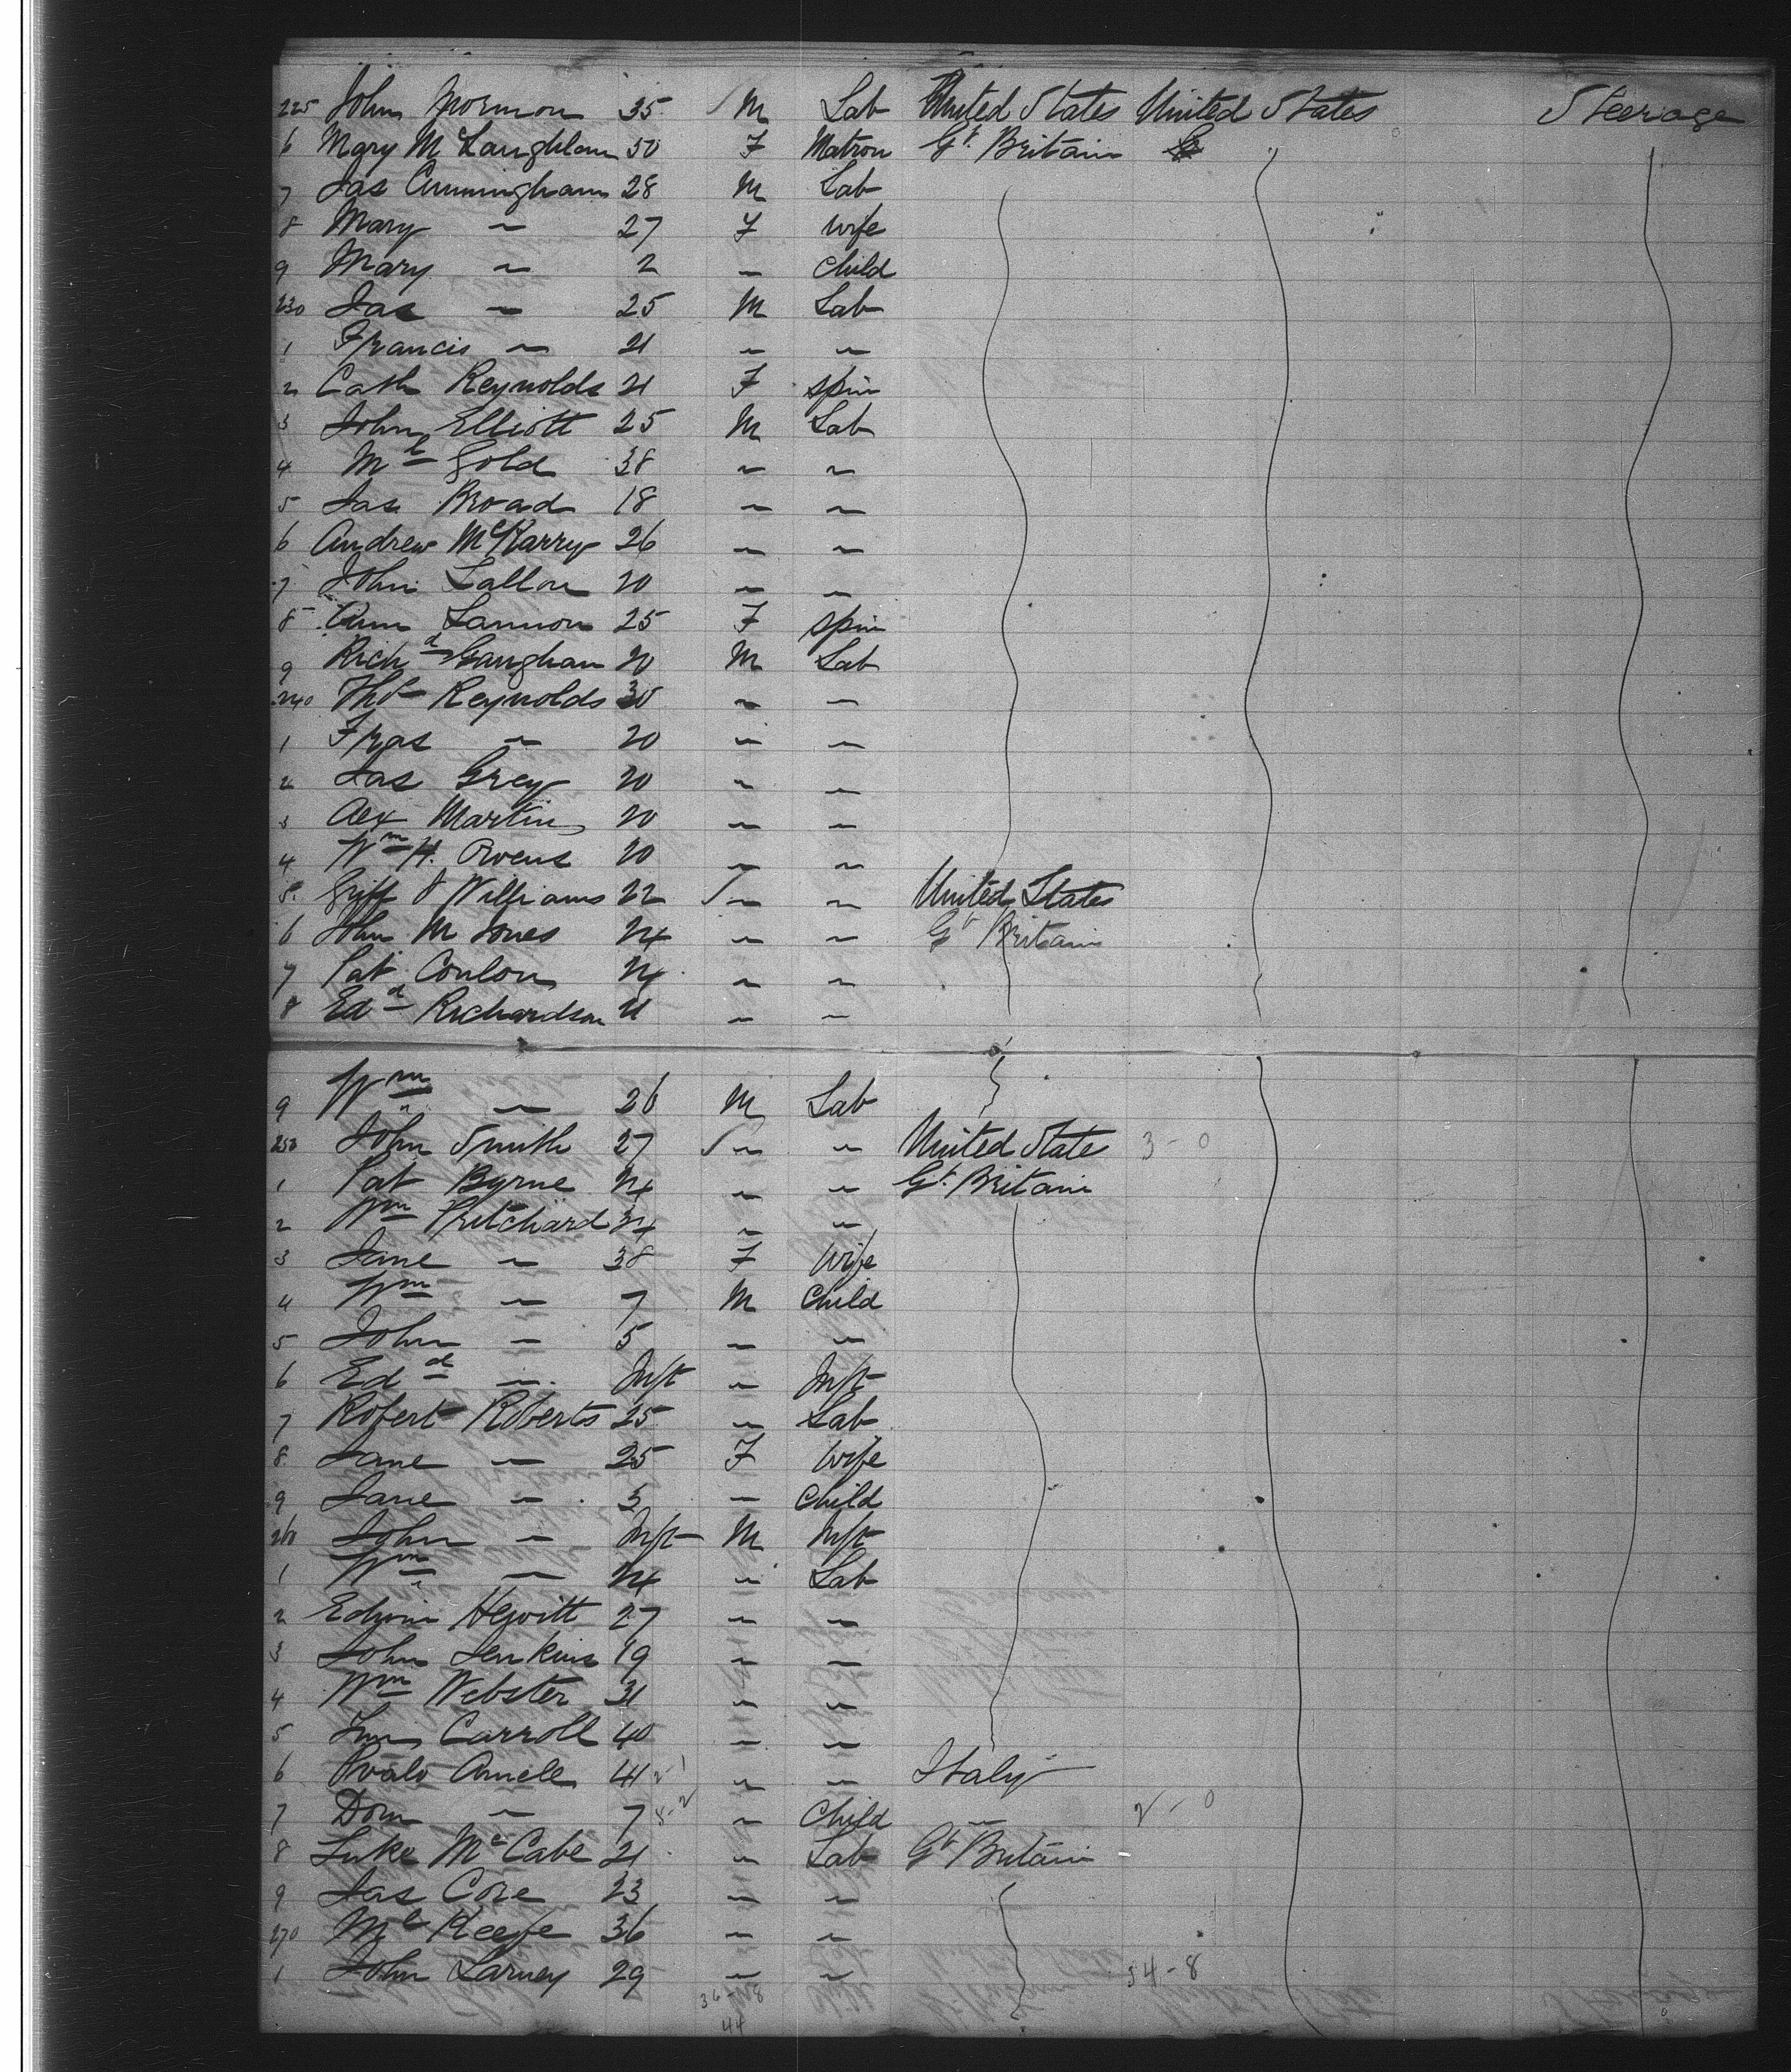 225 John Mormon 35 M Lab United States United States Steerage
6 Mary McLaughlan 50 F Matron Gt Britain
7 Jas Cunningham 28 M Lab
8 Mary " 27 F wife
9 Mary " 2 " Child
230 Jas " 25 M Lab
1 Francis " 21 " "
2 Cath Reynolds 21 F Spin
3 John Elliott 25 M Lab
4 Ml Gold 38 " "
5 Jas Broad 18 " "
6 Andrew McKarry 26 " "
7 John Lallon 20 " "
8 Ann Lannon 25 F Spin
9 Richd Gaughan 20 M Lab
240 Thos Reynolds 30 " "
1 Fras " 20 " "
2 Jas Grey 20 " "
3 Alex Martin 20 " "
4 Wm H. Owens 20 " "
5 Griff J Williams 22 " " United States
6 John M Jones 24 " " Gt Britain
7 Pat Conlon 24 " "
8 Edd Richardson 21 " "
9 Wm " 26 M Lab
250 John Smith 27 " " United State 3-0
1 Pat Byrne 24 " " Gt Britain
2 Wm Pritchard 34 " "
3 Jane " 38 F Wife
4 Wm " 7 M Child
5 John " 5 " "
6 Edd " Inft " Inft
7 Robert Roberts 25 " Lab
8 Jane " 25 F Wife
9 Jane " 3 " Child
260 John " Inft M Inft
1 Wm " 24 " Lab
2 Edwin Hewitt 27 " "
3 John Jenkins 19 " "
4 Wm Webster 31 " "
5 Carroll 40 " "
6 Amell 41 " " Italy
7 Dom " 7 " Child " 2-0
8 Luke McCabe 21 " Lab Gt Britain
9 Jas Core 23 " "
270 Ml Keefe 36 " "
1 John Larney 29 " " 54-8
36-8
44